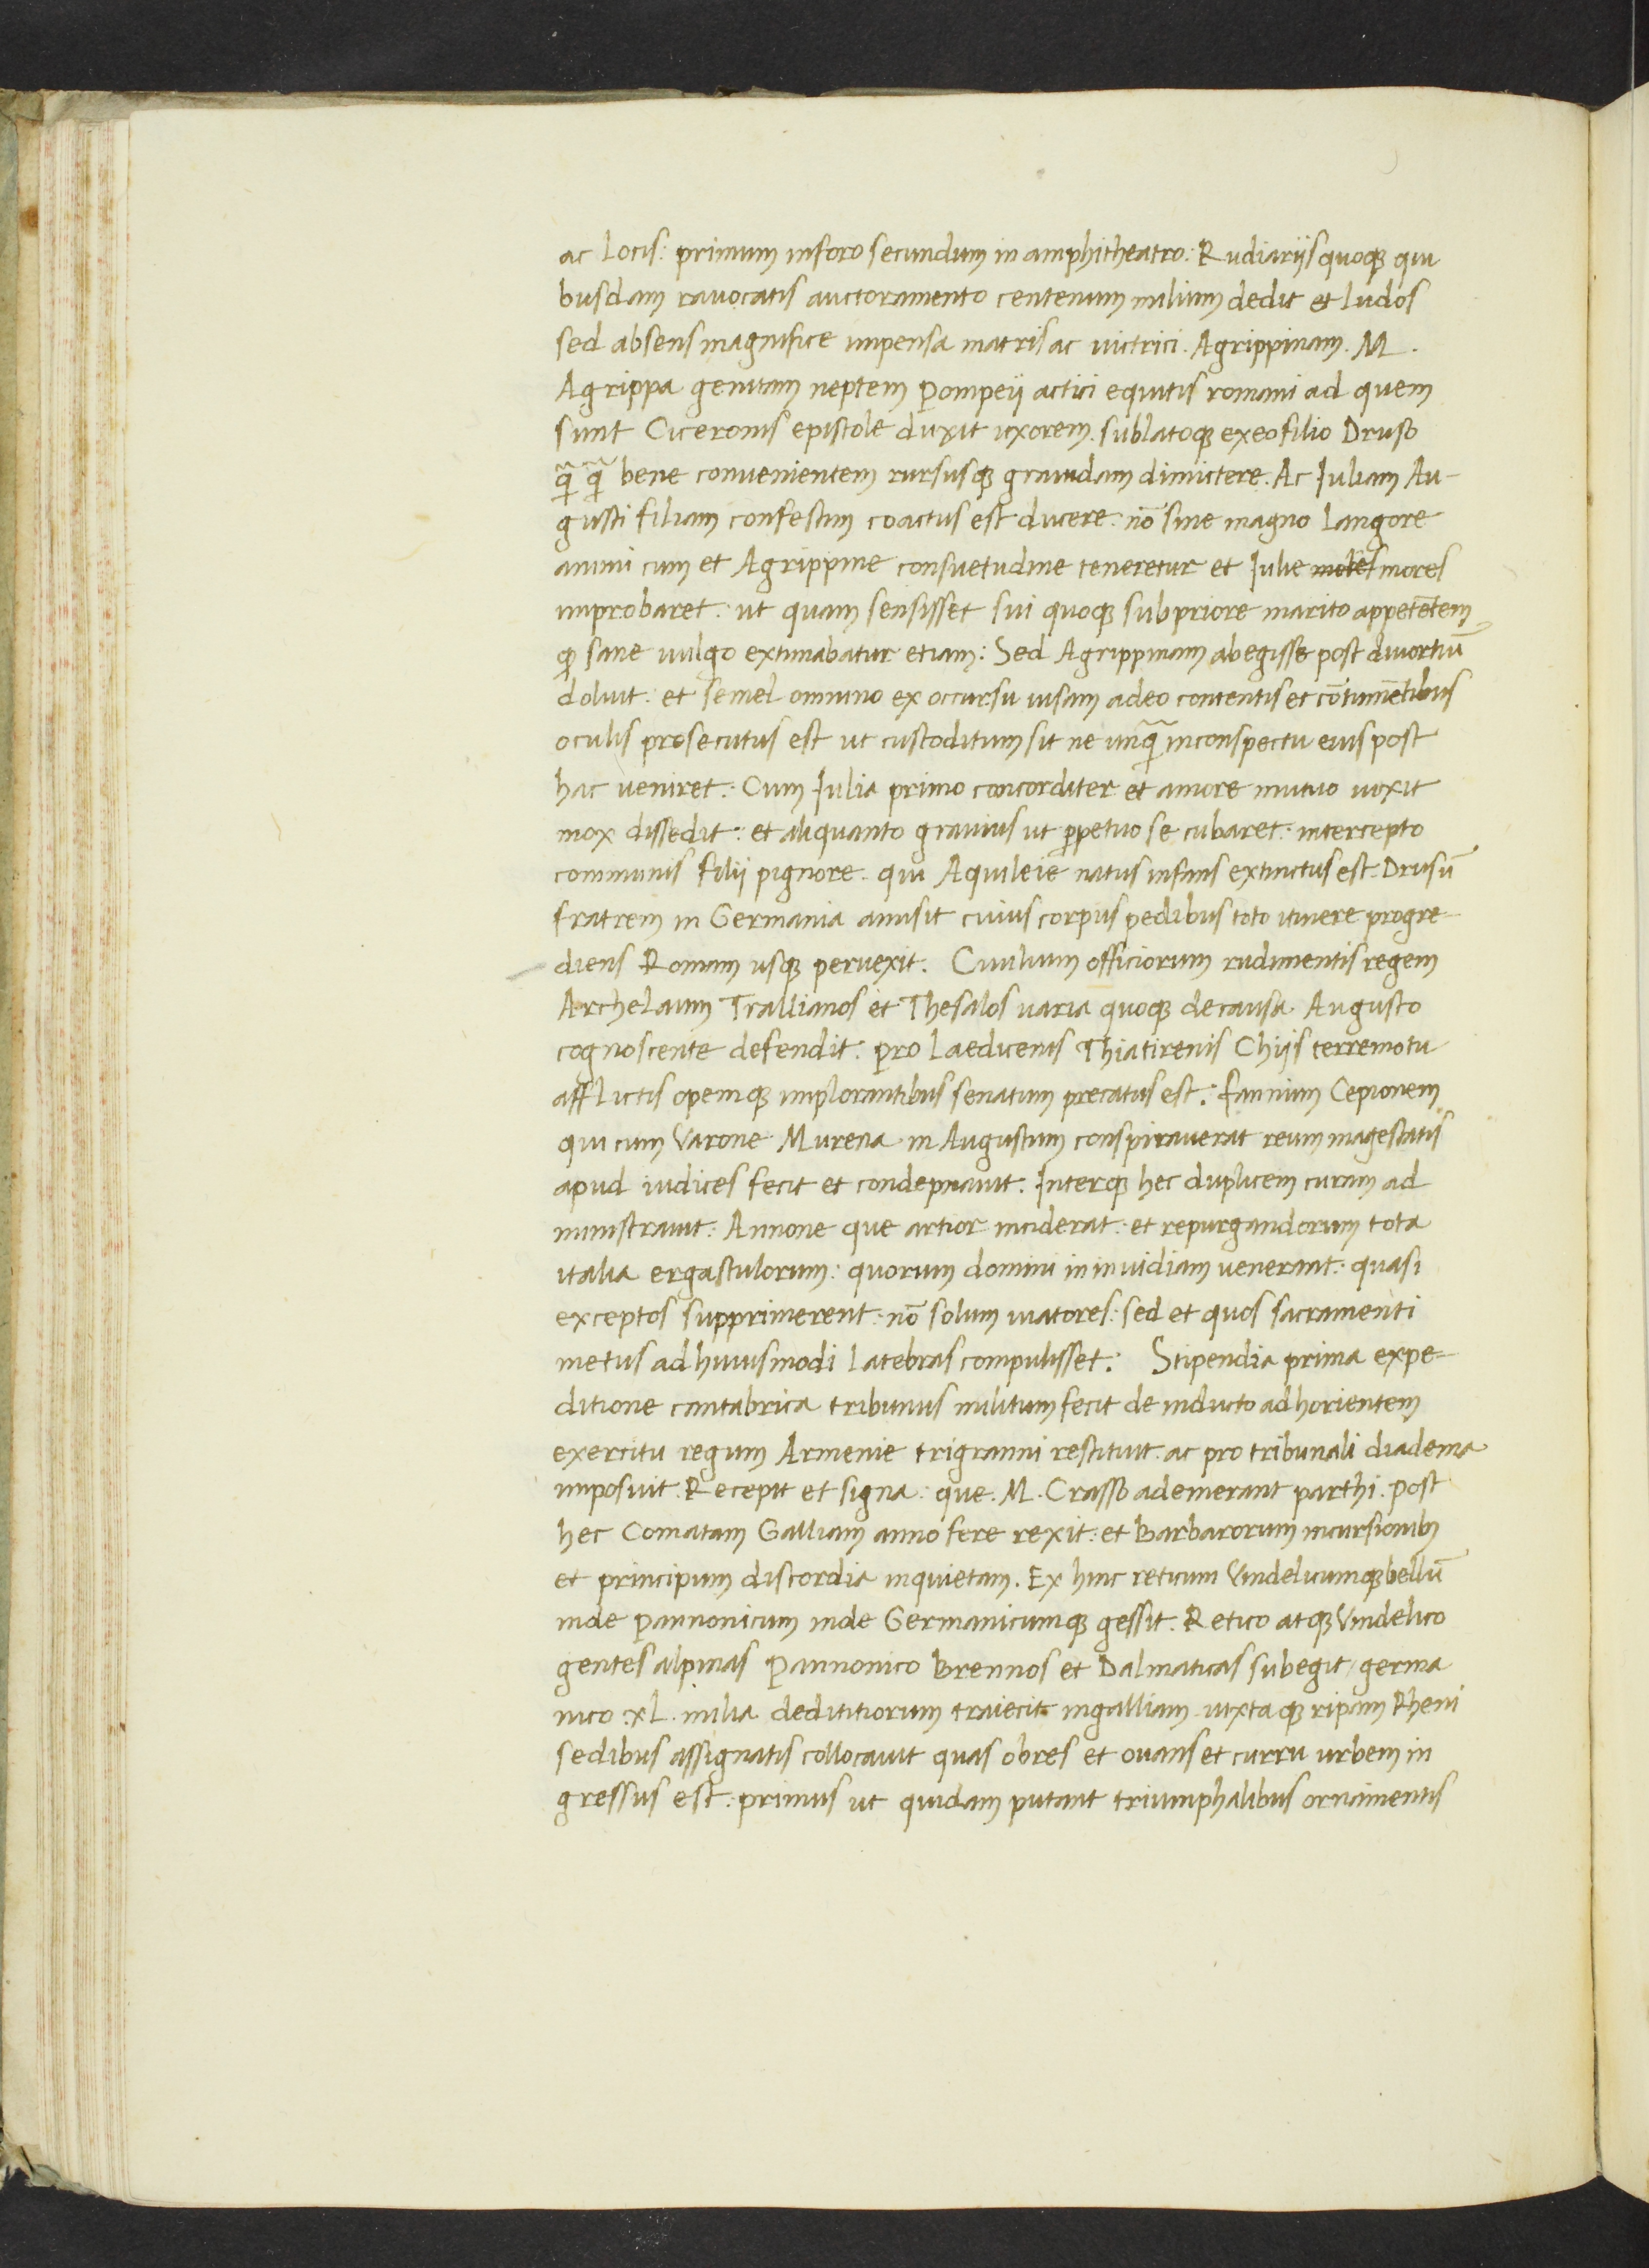 ac locis: primum in foro secundum in amphitheatro: Rudiarijs quoqꝫ qui
busdam ravocatis auctoramento centenum milium dedit et ludos
sed absens magnifice impensa matris ac victrici. Agrippinam. M.
Agrippa genitam neptem Pompeij actici equitis romani ad quem
sunt Ciceronis epistole duxit uxorem. sublatoqꝫ ex eo filio Druso
qᷓ qᷓ bene convenientem rursusqꝫ gravidam dimictere. Ac Iuliam Au-
gusti filiam confestim coactus est ducere: nō sine magno langore
animi cum et Agrippine consuetudine teneretur et Iulie mores
improbaret: ut quam sensisset sui quoqꝫ sub priore marito appetētem
qꝫ sane vulgo extimabatur etiam: Sed Agrippinam abegisse post divortiū
doluit: et semel omnino ex occursu visam adeo contentis et cōtumētibus
oculis prosecutus est ut custoditum sit ne unqᷓ in conspectu eius post
hac veniret: Cum Iulia primo concorditer et amore mutuo vixit
mox dissedit: et aliquanto gravius ut ꝑpetuo se cubaret: intercepto
communis filij pignore. qui Aquileie natus infans extinctus est. Drusū
fratrem in Germania amisit cuius corpus pedibus toto itinere progre-
diens Romam usqꝫ pervexit. Civilium officiorum rudimentis regem
Archelaum Trallianos et Thesalos varia quoqꝫ de causa Augusto
cognoscente defendit: pro Laedicenis Thiatirenis Chijs terremotu
afflictis opemqꝫ implorantibus senatum precatus est: fannium Cepionem
qui cum Varone Murena in Augustum conspiraverat reum magestatis
apud iudices fecit et condepnavit: Interqꝫ hec duplicem curam ad
ministravit: Annone que artior inciderat: et repurgandorum tota
italia ergastulorum: quorum domini in invidiam venerant: quasi
exceptos supprimerent: nō solum viatores: sed et quos sacramenti
metus ad huiusmodi latebras compulisset: Stipendia prima expe-
ditione cantabrica tribunus militum fecit de inducto ad horientem
exercitu regum Armenie trigranni restituit. ac pro tribunali diadema
imposuit. Recepit et signa: que. M. Crasso ademerant parthi. post
hec Comatam Galliam anno fere rexit: et Barbarorum incursionibꝫ
et principum discordia inquietam. Ex hinc reticum Vindelicumqꝫ bellū
inde pannonicum inde Germanicumqꝫ gessit. Retico atqꝫ Vindelico
gentes alpinas Pannonico Brennos et Dalmaticas subegit / germa
nico .xL. milia dedititiorum traiecit in galliam iuxtaqꝫ ripam Rheni
sedibus assignatis collocavit quas obres et ovans et curru urbem in
gressus est: primus ut quidam putant triumphalibus ornamentis